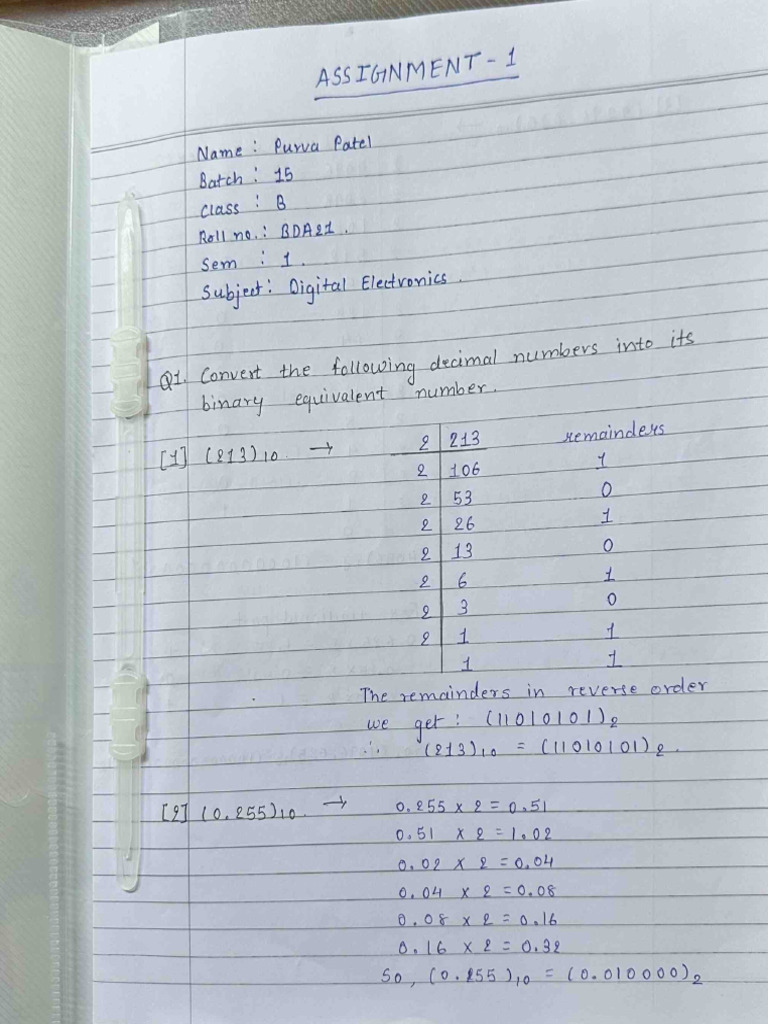 ASSIGNMENT - 1
Name : Purva Patel
Batch : 15
Class : B
Roll no. : BDA21.
Sem : 1.
Subject : Digital Electronics.
Q1. Convert the following decimal numbers into its
binary equivalent number.
[1] (213)10 → 2 213 remainders
2 106 1
2 53 0
2 26 1
2 13 0
2 6 1
2 3 0
2 1 1
1 1
The remainders in reverse order
we get : (11010101)2
∴ (213)10 = (11010101)2.
[2] (0.255)10 → 0.255 x 2 = 0.51
0.51 x 2 = 1.02
0.02 x 2 = 0.04
0.04 x 2 = 0.08
0.08 x 2 = 0.16
0.16 x 2 = 0.32
So, (0.255)10 = (0.010000)2